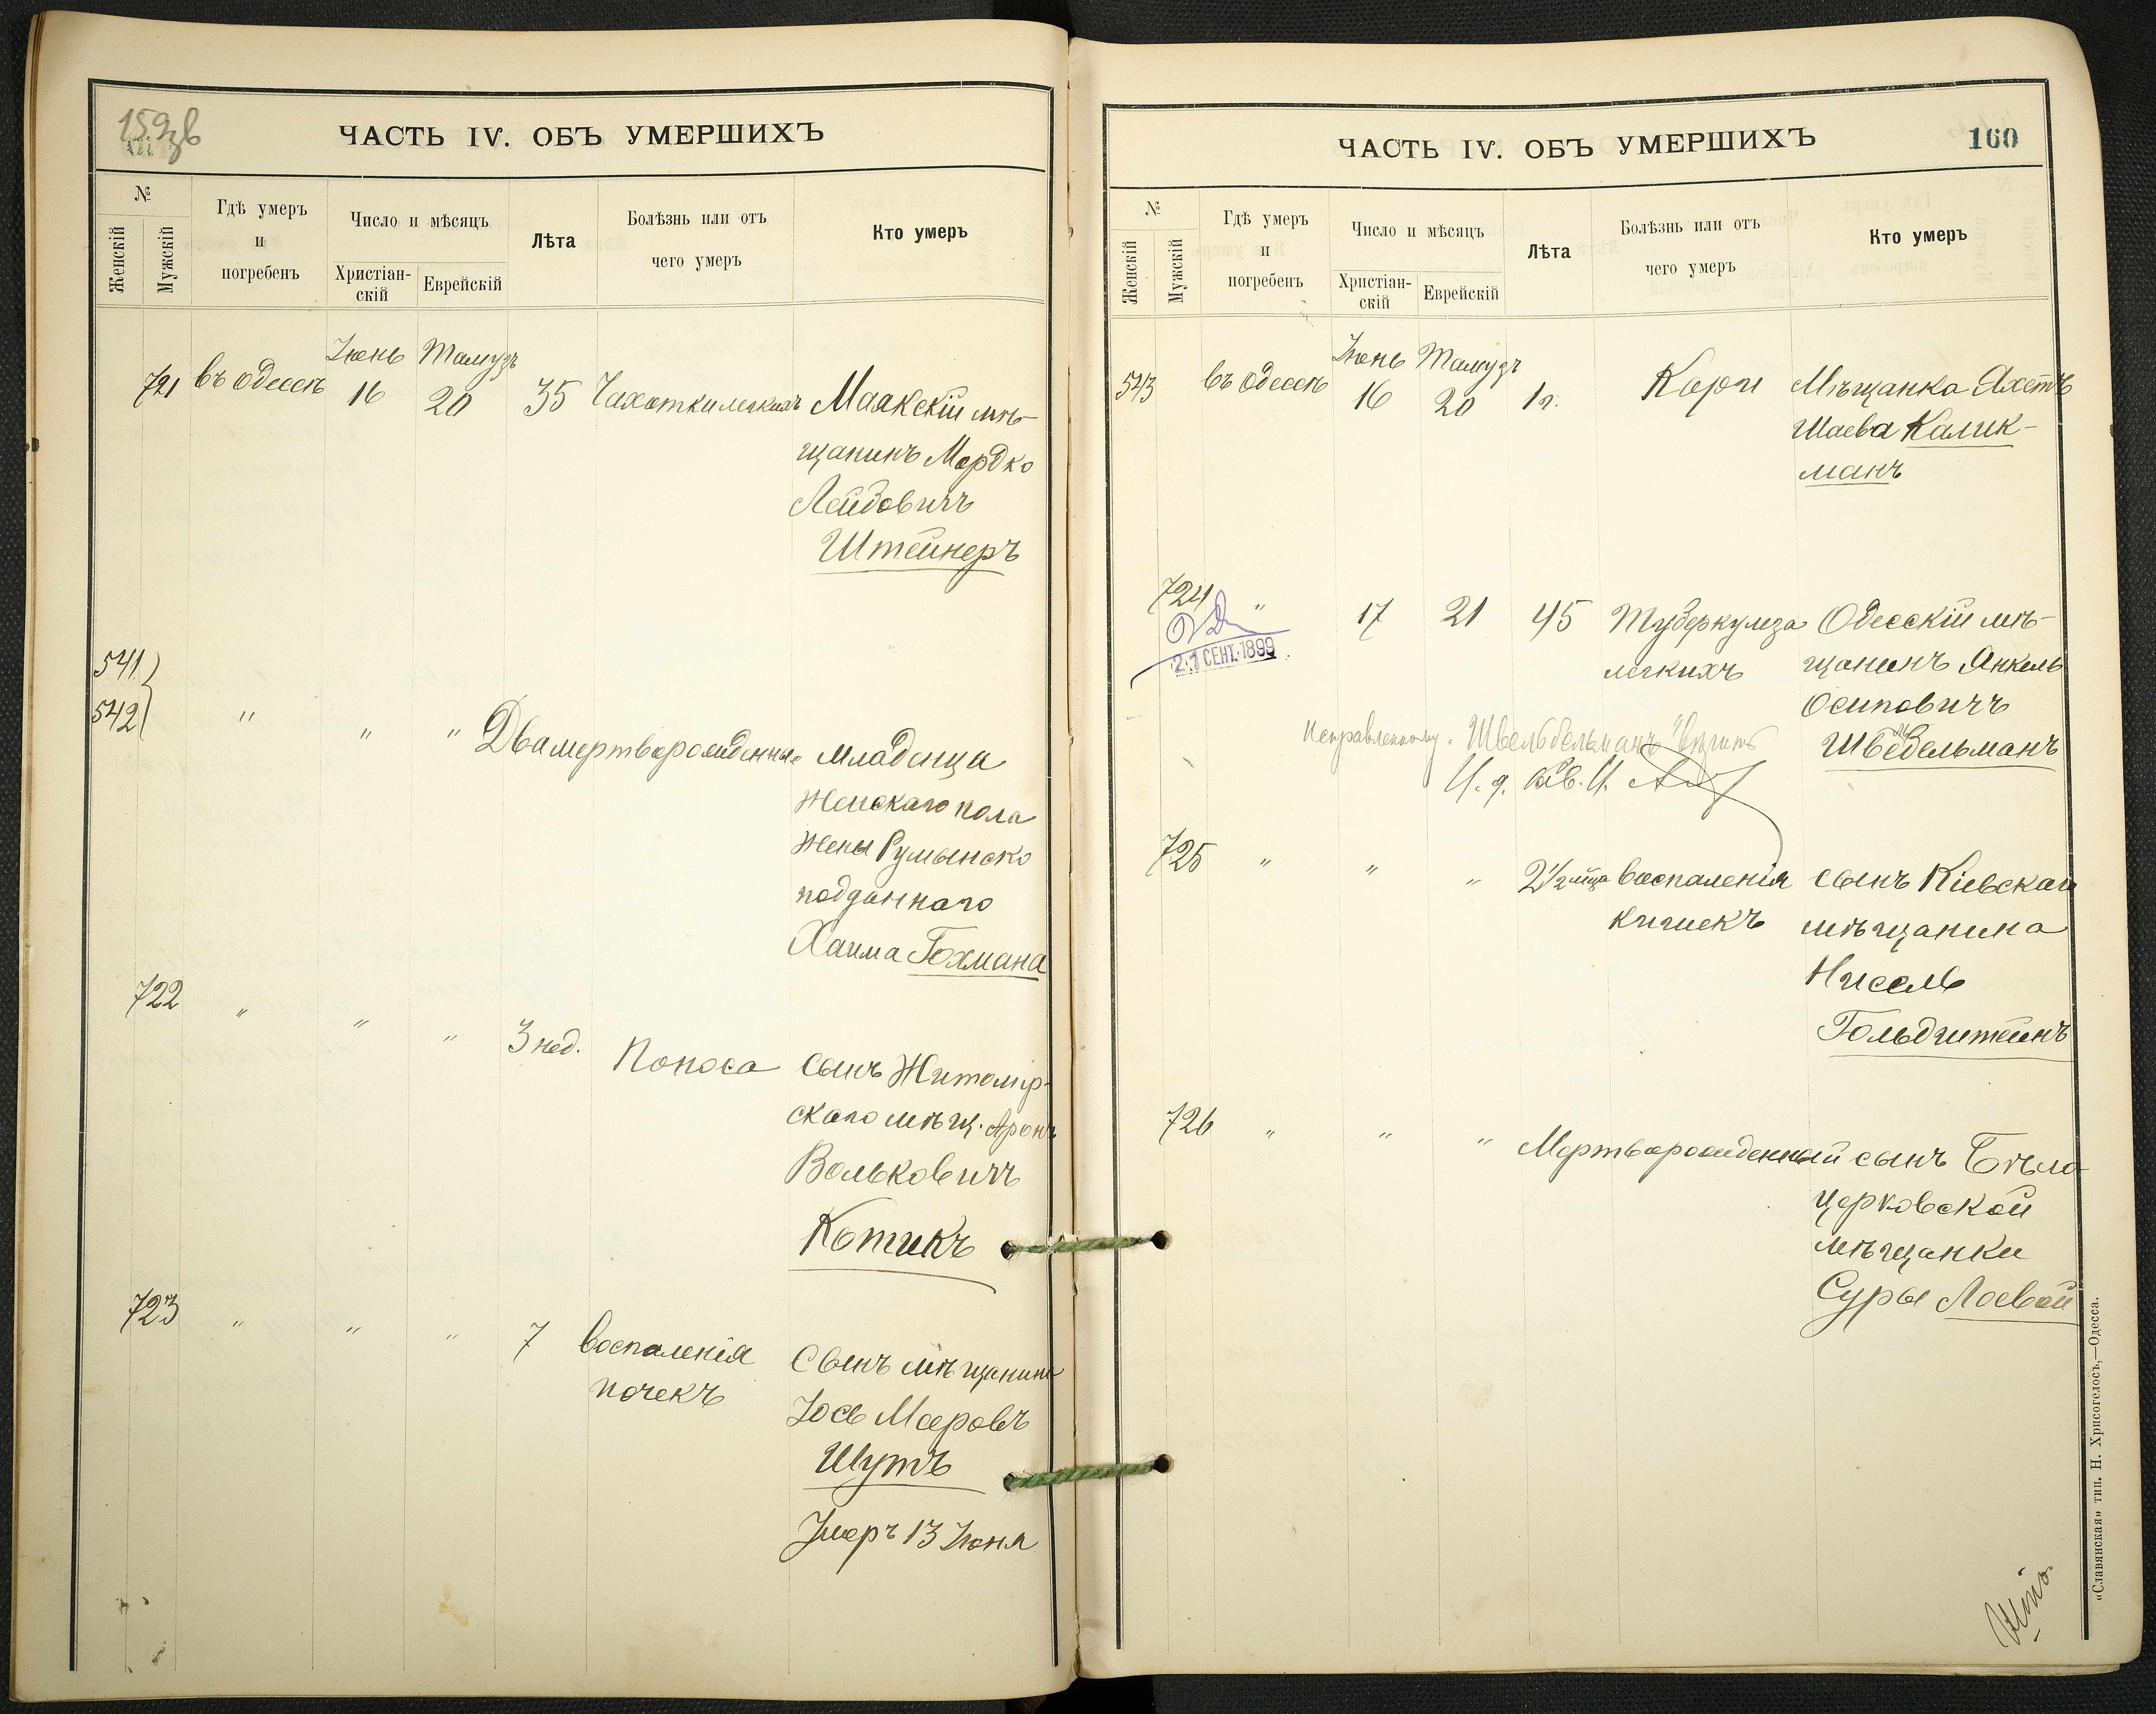 159 об
ЧАСТЬ IV. ОБЪ УМЕРШИХЪ
№
Женскій
Мужскій
Гдѣ умеръ
и
погребенъ
Число и мѣсяцъ
Христіан-
скій
Еврейскій
Лѣта
Болѣзнь или отъ
чего умеръ
Кто умеръ
Іюнь Тамузъ
721 въ Одессѣ 16 20 35 Чахотки легкихъ Маякскій мѣ-
щанинъ Мордко
Лейбовичъ
Штейнеръ
541
542 " " " Два мертворожденные младенца
Женскаго пола
Жены Румынско
подданнаго
Хаима Гохмана
722 " " " 3 нед. Поноса сынъ Житомір-
скаго мѣщ. Аронъ
Вольковичъ
Котикъ
723 " " " 7 воспаленія Сынъ мѣщанина
почекъ Іось Мееровъ
Шутъ
Умеръ 13 Іюня
ЧАСТЬ IV. ОБЪ УМЕРШИХЪ
160
№
Женскій
Мужскій
Гдѣ умеръ
и
погребенъ
Число и мѣсяцъ
Христіан-
скій
Еврейскій
Лѣта
Болѣзнь или отъ
чего умеръ
Кто умеръ
Іюнь Тамузъ
543 въ Одессѣ 16 20 1 г. Кори Мѣщанка Ахетъ
Шаева Калик-
манъ
724 " 17 21 45 Туберкулеза Одесскій мѣ-
легкихъ щанинъ Янкель
21 СЕНТ. 1899
Осиповичъ
Исправленному "Швельбельманъ" вѣрить
Швебельманъ
И. д.
725 " " " 2½ мѣца воспаленія сынъ Кіевскаго
кишекъ мѣщанина
Нисель
Гольдштейнъ
726 " " " Мертворожденный сынъ Бѣло-
церковской
мѣщанки
Суры Лоевой
«Славянская» тип. Н. Хрисогелосъ,—Одесса.